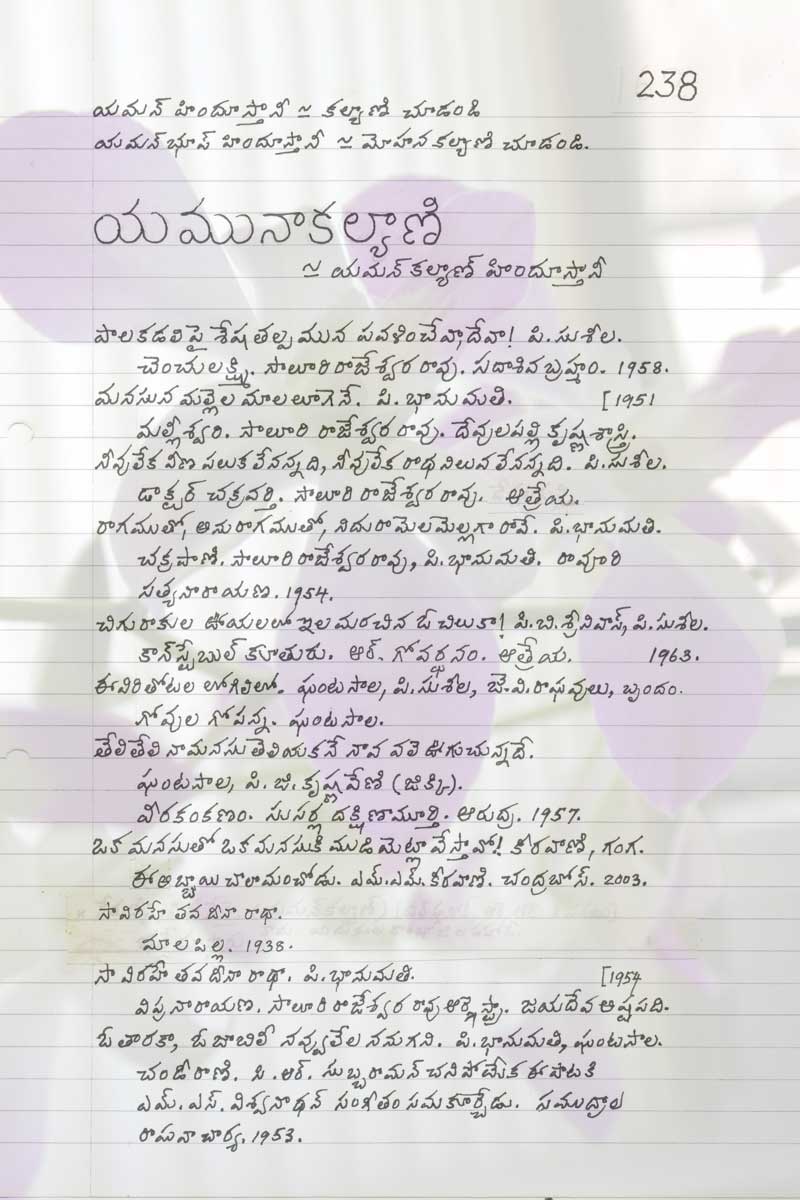 238
యమన్ హిందూస్తానీ ≃ కల్యాణి చూడండి
యమన్‌భూప్ హిందూస్తానీ ≃ మోహనకల్యాణి చూడండి.
యమునాకల్యాణి
≃ యమన్‌కల్యాణ్ హిందూస్తానీ
పాలకడలిపై శేషతల్పమున పవళించేవా,దేవా! పి.సుశీల.
చెంచులక్ష్మి. సాలూరి రాజేశ్వర రావు. సదాశివబ్రహ్మం. 1958.
మనసున మల్లెల మాలలూగెనే. పి.భానుమతి. [1951
మల్లీశ్వరి. సాలూరి రాజేశ్వర రావు. దేవులపల్లి కృష్ణశాస్త్రి.
నీవులేక వీణ పలుకలేనన్నది, నీవులేక రాధ నిలువలేనన్నది. పి.సుశీల.
డాక్టర్ చక్రవర్తి. సాలూరి రాజేశ్వరరావు. ఆత్రేయ.
రాగముతో, అనురాగముతో, నిదురా మెలమెల్లగా రావే. పి.భానుమతి.
చక్రపాణి. సాలూరి రాజేశ్వరరావు, పి.భానుమతి. రావూరి
సత్యనారాయణ. 1954.
చిగురాకుల ఊయలలో ఇల మరచిన ఓ చిలుకా! పి.బి.శ్రీనివాస్, పి.సుశీల.
కాన్‌స్టేబుల్ కూతురు. ఆర్. గోవర్ధనం. ఆత్రేయ. 1963.
ఈవిరితోటల లోగిలిలో. ఘంటసాల, పి.సుశీల, జె.వి.రాఘవులు, బృందం.
గోవుల గోపన్న. ఘంటసాల.
తేలితేలి నామనసు తెలియకనే నావ వలె ఊగుచున్నదే.
ఘంటసాల, పి. జి. కృష్ణవేణి (జిక్కి).
వీరకంకణం. సుసర్ల దక్షిణామూర్తి. ఆరుద్ర. 1957.
ఒక మనసుతో ఒక మనసుకి ముడి మెట్లా వేస్తావో! కీరవాణి, గంగ.
ఈ అబ్బాయి చాలా మంచోడు. ఎమ్.ఎమ్. కీరవాణి. చంద్రబోస్. 2003.
సావిరహే తవ దీనా రాధా.
మాలపిల్ల. 1938.
సా విరహే తవ దీనా రాధా. పి.భానుమతి. [1954
విప్రనారాయణ. సాలూరి రాజేశ్వర రావు ఆర్కెస్ట్రా. జయదేవ అష్టపది.
ఓ తారకా, ఓ జాబిలీ నవ్వులేల ననుగని. పి.భానుమతి, ఘంటసాల.
చండీరాణి. సి.ఆర్. సుబ్బరామన్ చనిపోయేక ఈపాటకి
ఎమ్.ఎస్.విశ్వనాథన్ సంగీతం సమకూర్చేడు. సముద్రాల
రాఘవాచార్య. 1953.